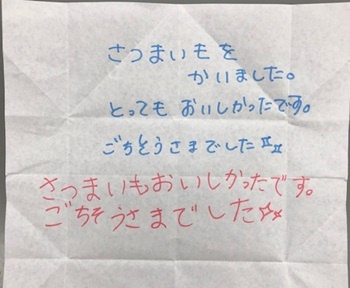 さつまいもを
かいました。
とっても おいしかったです。
ごちそうさまでした
さつまいもおいしかったです。
ごちそうさまでした☆☆